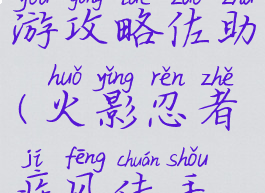 游攻略佐助
huǒ yǐng rěn zhě
(火影忍者
jí fēng chuán shǒu
疾风传手